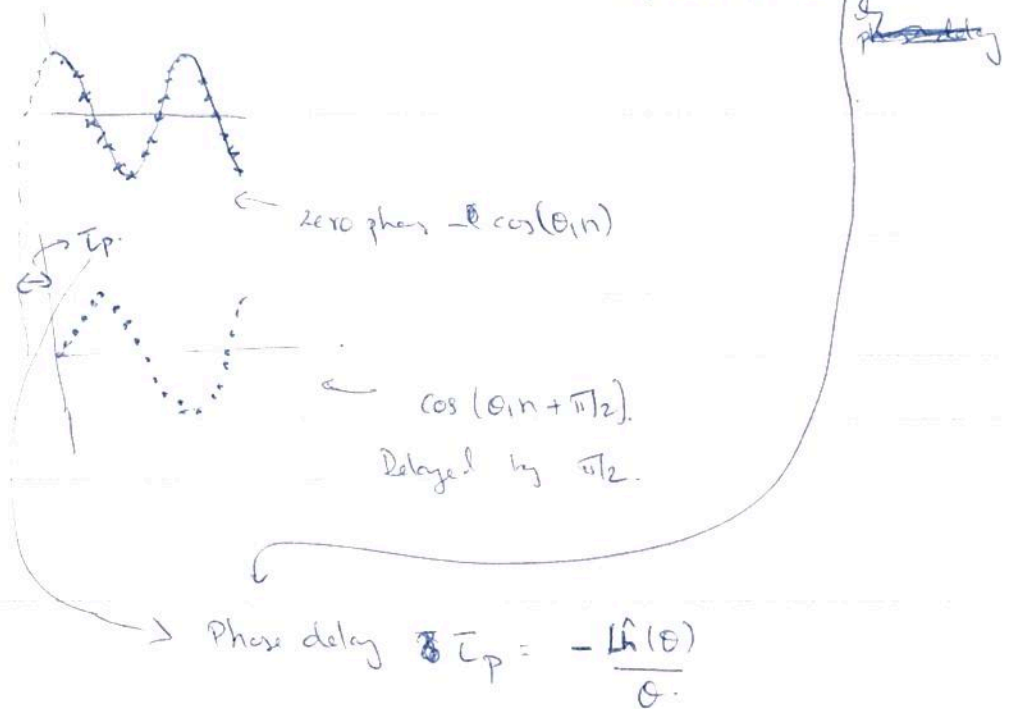 by
phase delay
← zero phas cos(θ₁n)
→ τp.
← cos(θ₁n + π/2).
Delayed by π/2.
→ Phase delay τp = - ∠ĥ(θ)
θ.